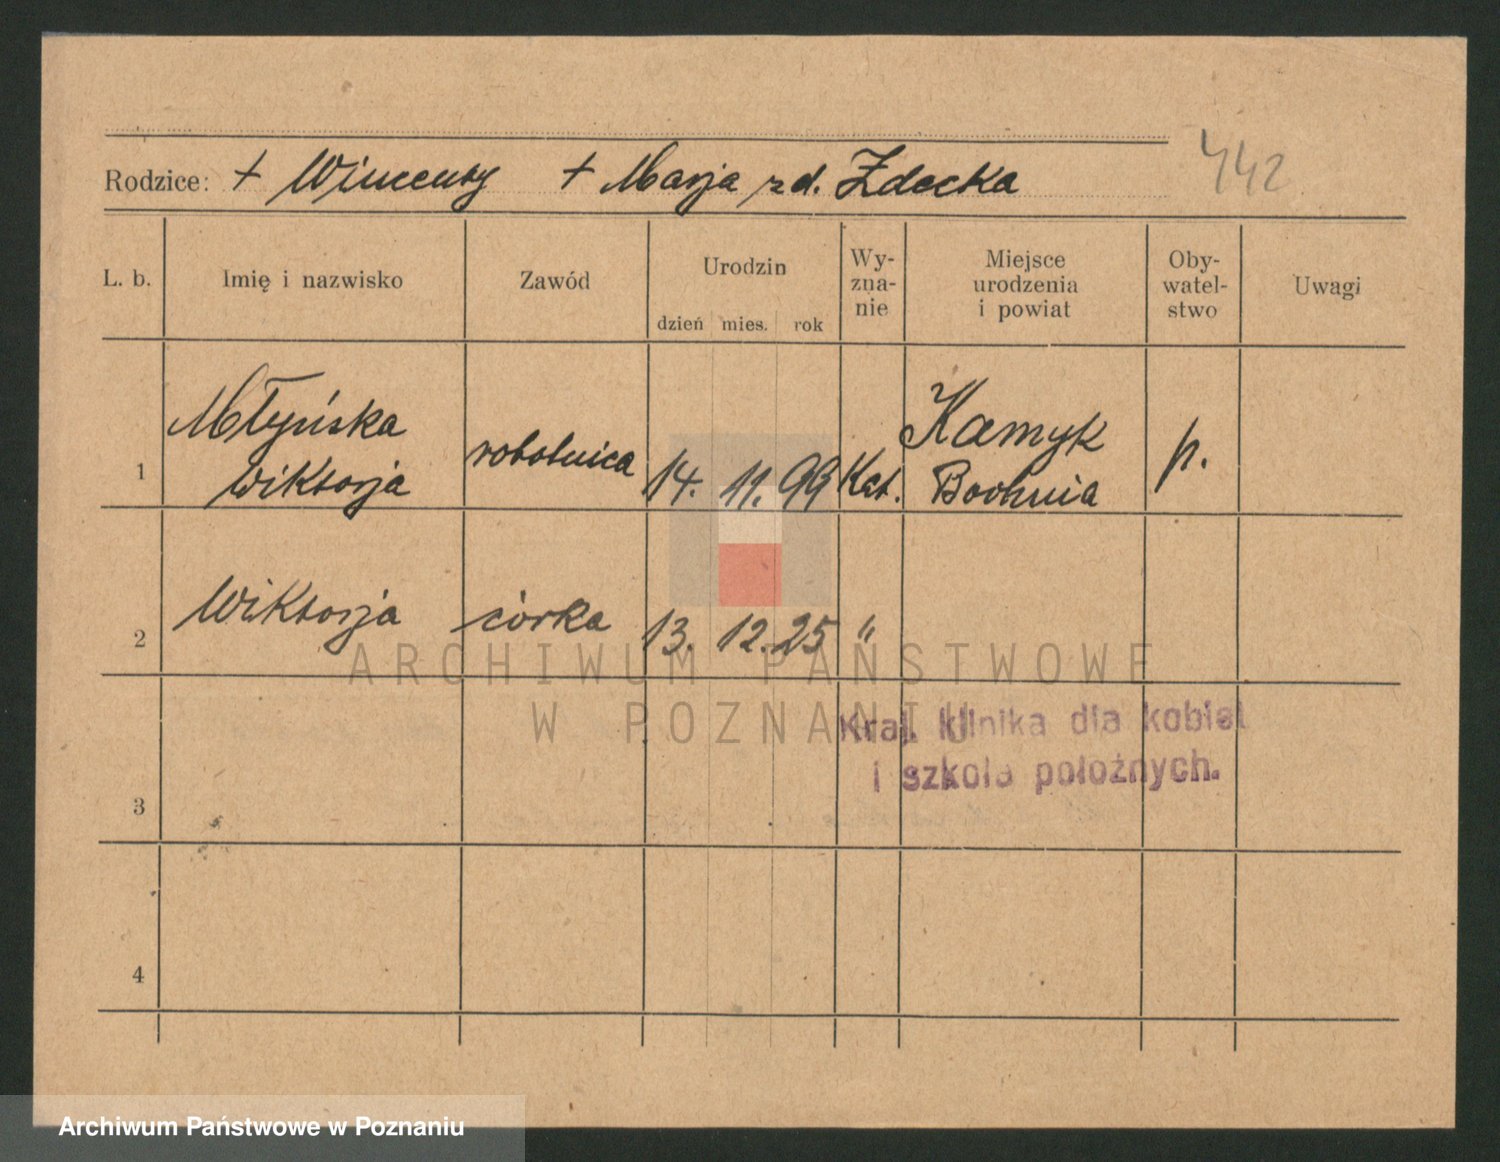 Rodzice: + Wincenty + Marja zd. Zdecka
442
L. b. Imię i nazwisko Zawód Urodzin Wy-zna-nie Miejsce urodzenia i powiat Oby-watel-stwo Uwagi
dzień mies. rok
1 Młyńska Wiktorja robotnica 14. 11. 99 Kat. Kamyk Bochnia p.
2 Wiktorja córka 13. 12. 25 "
ARCHIWUM PAŃSTWOWE
W POZNANIU
Kraj. klinika dla kobiet
i szkoła położnych.
3
4
Archiwum Państwowe w Poznaniu